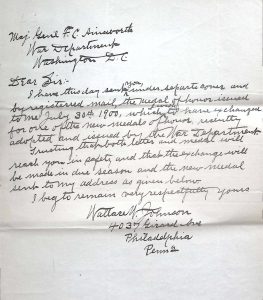 Maj. Genl. F. C. Ainsworth
War Department
Washington D.C.
Dear Sir:-
I have this day sent you under separate cover and
by registered mail, the medal of honor issued
to me July 30th 1900, which to have exchanged
for one of the new medals of honor, recently
adopted and issued by the War Department
Trusting that both letter and medal will
reach you in safety and that the exchange will
be made in due season and the new medal
sent to my address as given below
I beg to remain very respectfully yours
Wallace W. Johnson
4037 Girard Ave
Philadelphia
Penna